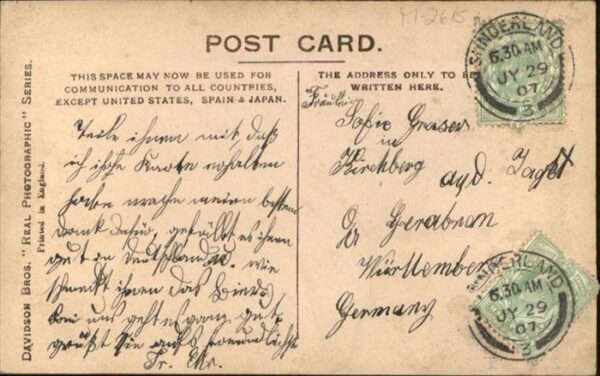 M-2615
POST CARD.
THIS SPACE MAY NOW BE USED FOR
COMMUNICATION TO ALL COUNTRIES,
EXCEPT UNITED STATES, SPAIN & JAPAN.
THE ADDRESS ONLY TO BE
WRITTEN HERE.
DAVIDSON BROS. "REAL PHOTOGRAPHIC" SERIES.
Printed in England.
Teile ihnen mit, daß
ich ihre Karte erhalten
habe meinen besten
Dank dafür, gefällt es ihnen
gut in Deutschland. wie
schmeckt ihnen das Bier
bei uns geht es ganz gut
grüßt Sie aufs freundlichste
Fräulein
Sofie
in
Kirchberg a/d. Jagst
Gerabronn
Württemberg
Germany
SUNDERLAND
6.30 AM
JY 29
07
3
SUNDERLAND
6.30 AM
JY 29
07
3